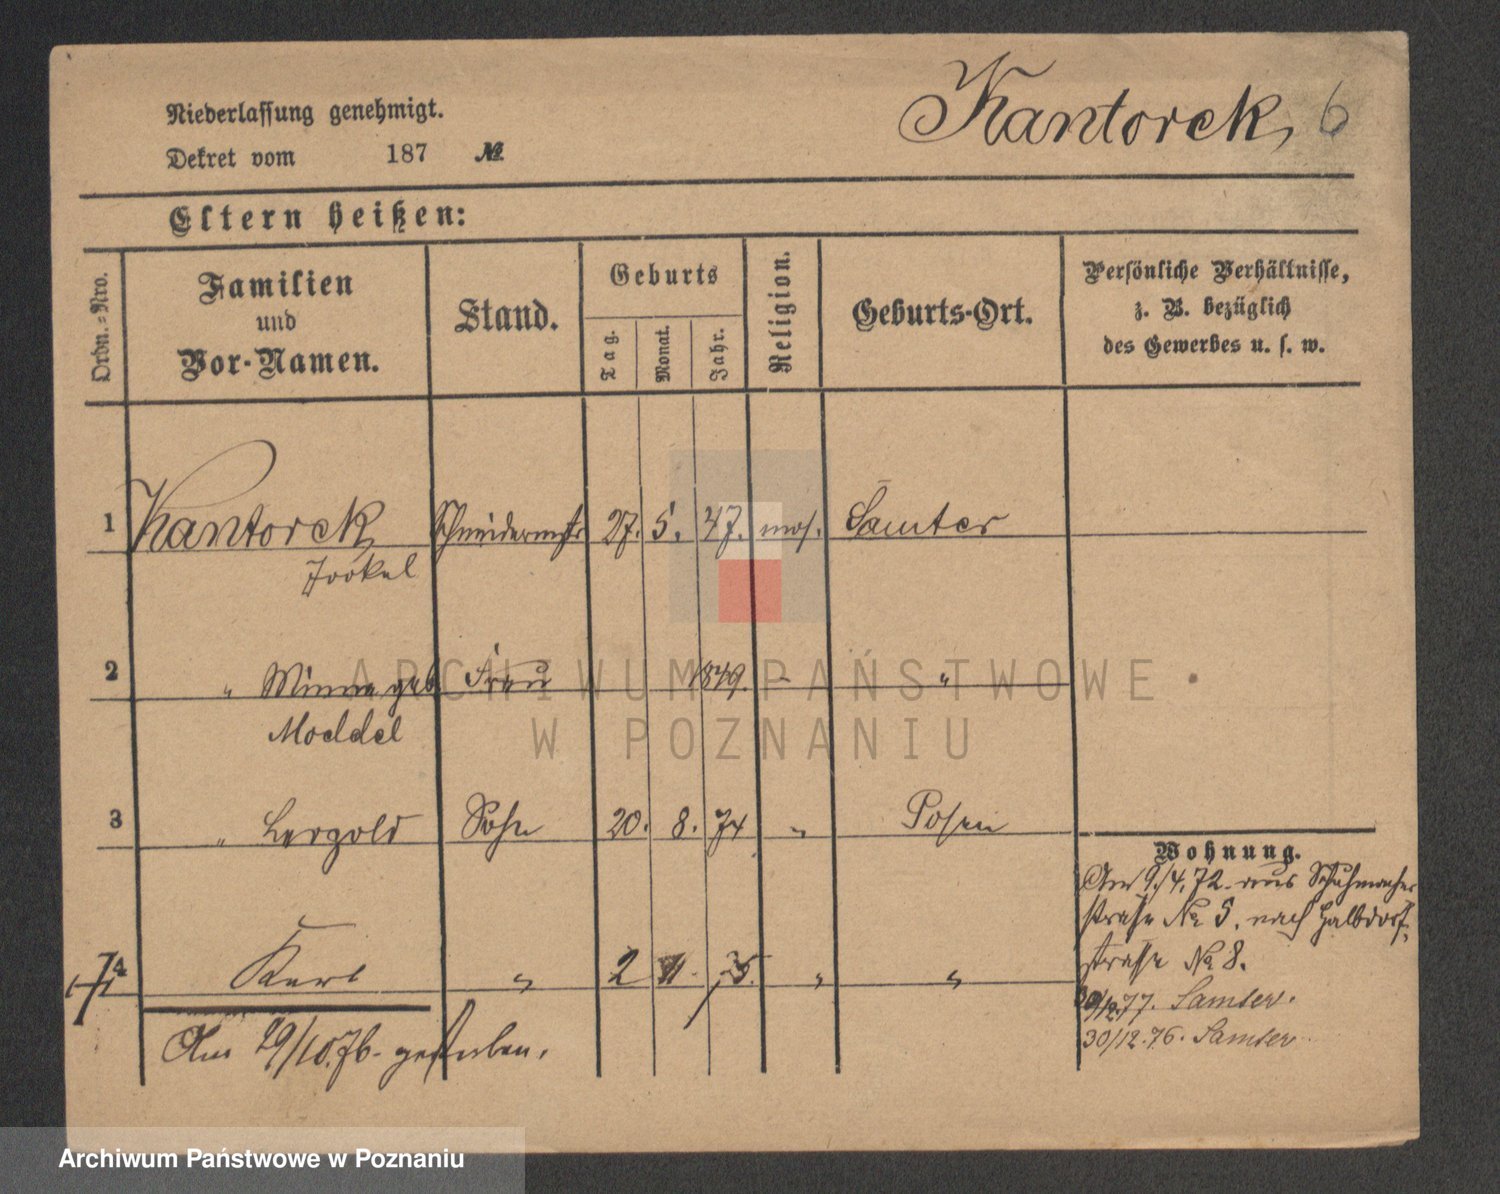 Kantorek, 6
Niederlassung genehmigt.
Dekret vom 187 №
Eltern heißen:
Ordn.-Nro.
Familien
und
Vor-Namen.
Stand.
Geburts
Tag.
Monat.
Jahr.
Religion.
Geburts-Ort.
Persönliche Verhältnisse,
z. B. bezüglich
des Gewerbes u. s. w.
1 Kantorek, Schneidermstr 27. 5. 47. mos. Samter
2 " Minna geb Frau 1849. " "
Moeddel
3 " Sohn 20. 8. 74 " Posen
4 Karl " 2 11. 75. " "
Am 29/10.76. gestorben.
Wohnung.
Am 9./4.72. aus Schuhmacher
straße № 5. nach Halbdorf-
straße № 8.
77. Samter.
30/12.76. Samter
ARCHIWUM PAŃSTWOWE
W POZNANIU
Archiwum Państwowe w Poznaniu